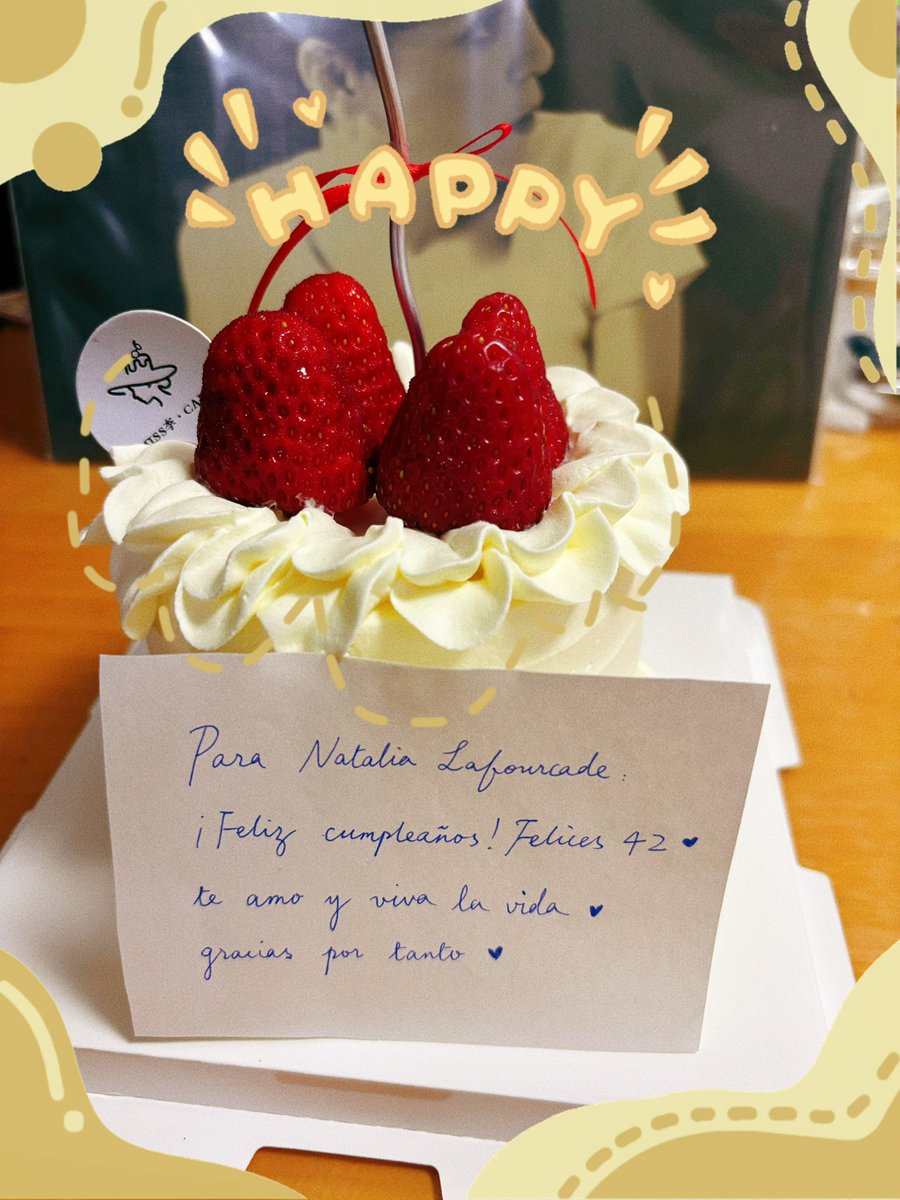 HAPPY
Para Natalia Lafourcade:
¡Feliz cumpleaños! Felices 42 ♥
te amo y viva la vida ♥
gracias por tanto ♥